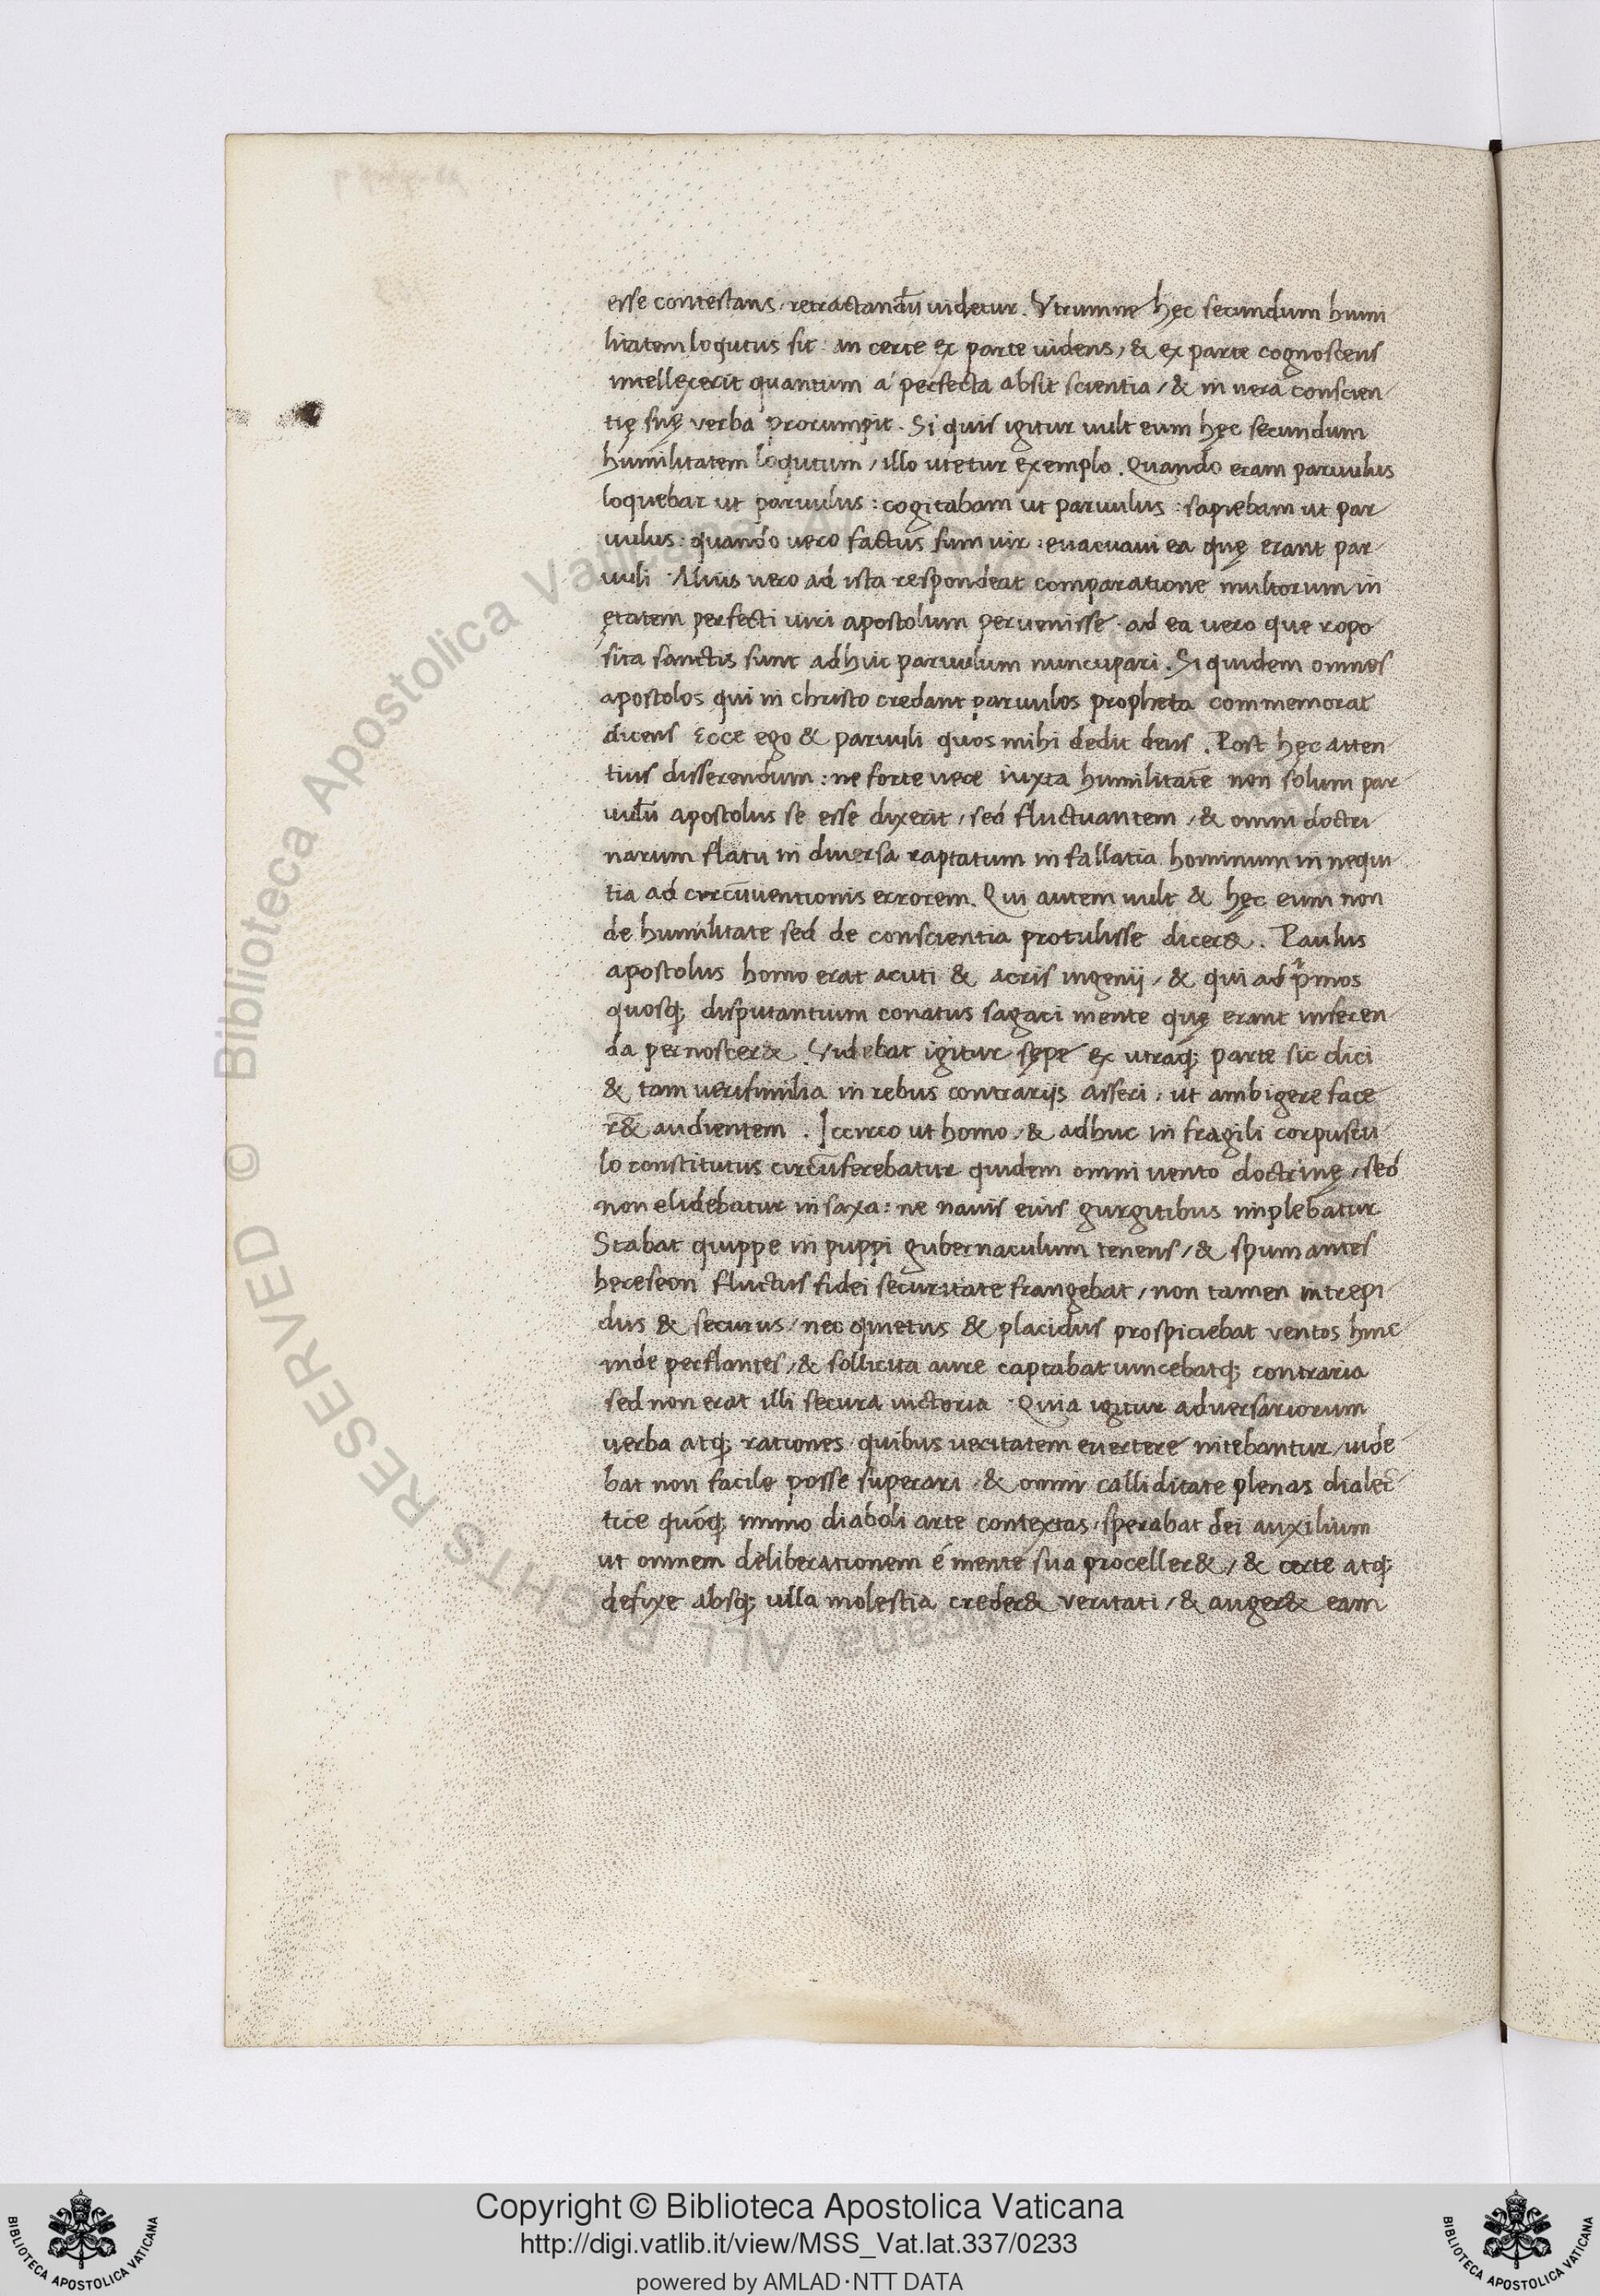 esse contestans, retractandū uidetur. Vtrumne hęc secundum humi
litatem loqutus sit: an certe ex parte uidens, & ex parte cognoscens
intellexerit quantum á perfecta absit scientia, & in uera conscien
tię suę verba prorumpit. Si quis igitur uult eum hęc secundum
humilitatem loqutum, illo utetur exemplo. Quando eram paruulus
loquebar ut paruulus: cogitabam ut paruulus: sapiebam ut par
uulus: quando uero factus sum uir: euacuaui ea quę erant par
uuli. Alius uero ad ista respondeat comparatione multorum in
ętatem perfecti uiri apostolum peruenisse. ad ea uero que ropo
sita sanctis sunt adhuc paruulum nuncupari. Siquidem omnes
apostolos qui in christo credant paruulos propheta commemorat
dicens Ecce ego & paruuli quos mihi dedit deus. Post hęc atten
tius disserendum: ne forte uere iuxta humilitatē non solum par
uulū apostolus se esse dixerit, sed fluctuantem, & omni doctri
narum flatu in diuersa raptatum in fallatia hominum in nequi
tia ad circūuentionis errorem. Qui autem uult & hęc eum non
de humilitate sed de conscientia protulisse dicer&. Paulus
apostolus homo erat acuti & acris ingenij, & qui ad pͥmos
quosq; disputantium conatus sagaci mente quę erant inferen
da pernoscer&. Videbat igitur sępe ex utraq; parte sic dici
& tam uerisimilia in rebus contrarijs asseri, ut ambigere face
r& audientem. Iccirco ut homo, & adhuc in fragili corpuscu
lo constitutus circūferebatur quidem omni uento doctrinę, sed
non elidebatur in saxa: ne nauis eius gurgitibus implebatur
Stabat quippe in puppi gubernaculum tenens, & spumantes
hereseon fluctus fidei securitate frangebat, non tamen intrepi
dus & securus, nec quietus & placidus prospiciebat ventos hinc
inde perflantes, & sollicita aure captabat uincebatq; contraria
sed non erat illi secura uictoria. Quia igitur aduersariorum
uerba atq; rationes quibus ueritatem euertere nitebantur, uide
bat non facile posse superari, & omni calliditate plenas dialec
tice quoq; immo diaboli arte contextas, sperabat dei auxilium
ut omnem deliberationem é mente sua proceller&, & certe atq;
defixe absq; ulla molestia creder& veritati, & auger& eam
Copyright © Biblioteca Apostolica Vaticana
http://digi.vatlib.it/view/MSS_Vat.lat.337/0233
powered by AMLAD·NTT DATA